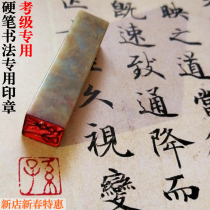 考级专用
硬笔书法专用印章
映之道
致通降而
久視變
新店新春特惠